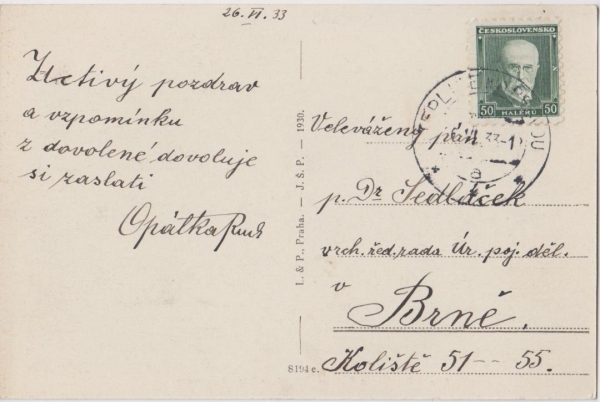 26. VI. 33
ČESKOSLOVENSKO
50 50
HALÉŘŮ
Uctivý pozdrav
a vzpomínku
z dovolené dovoluje
si zaslati
Opátka
L. & P., Praha. — J. Š. P. — 1930.
8194 c.
Velevážený pán
p. Dr Sedláček
vrch. řed. rada Úr. poj. děl.
v
Brně.
Koliště 51 -- 55.